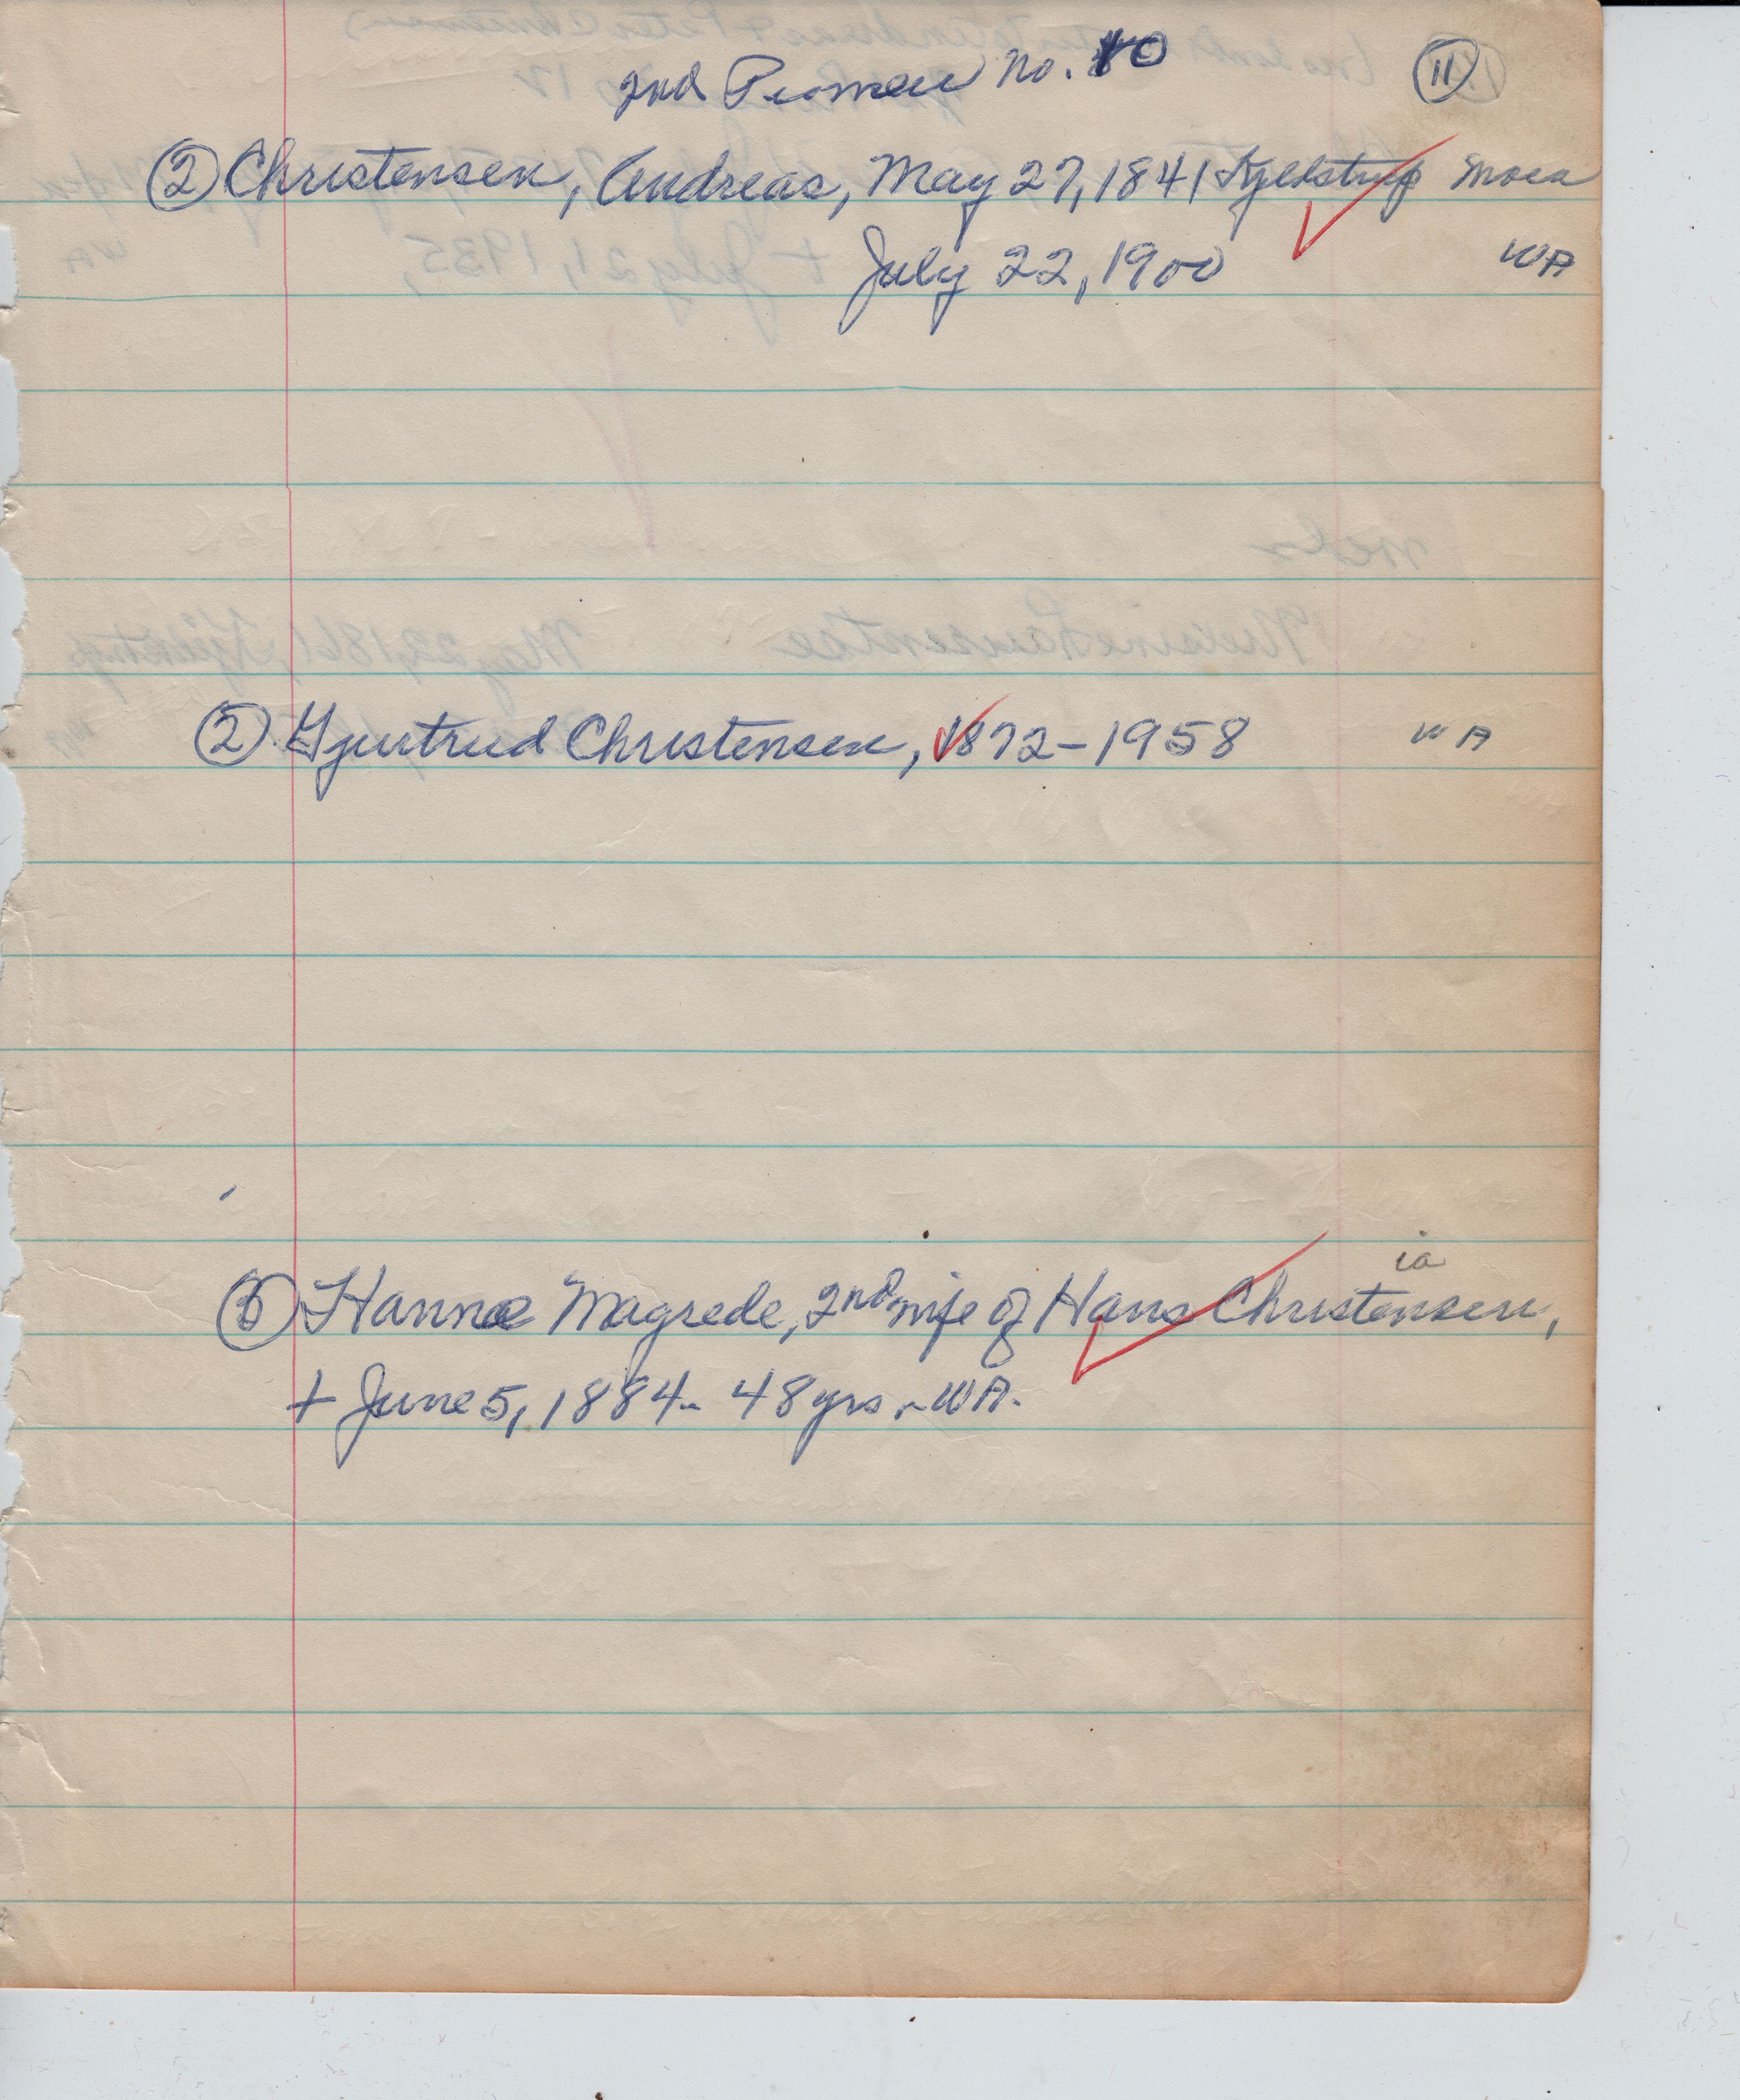 2nd Pioneer No. 10
11
② Christensen, Andreas, May 27, 1841 Kjelstrup Moen
July 22, 1900 WA
② Gjertrud Christensen, 1872-1958 WA
ia
⑥ Hanna Magrede, 2nd wife of Hans Christensen,
+ June 5, 1884 - 48 yrs - WA.